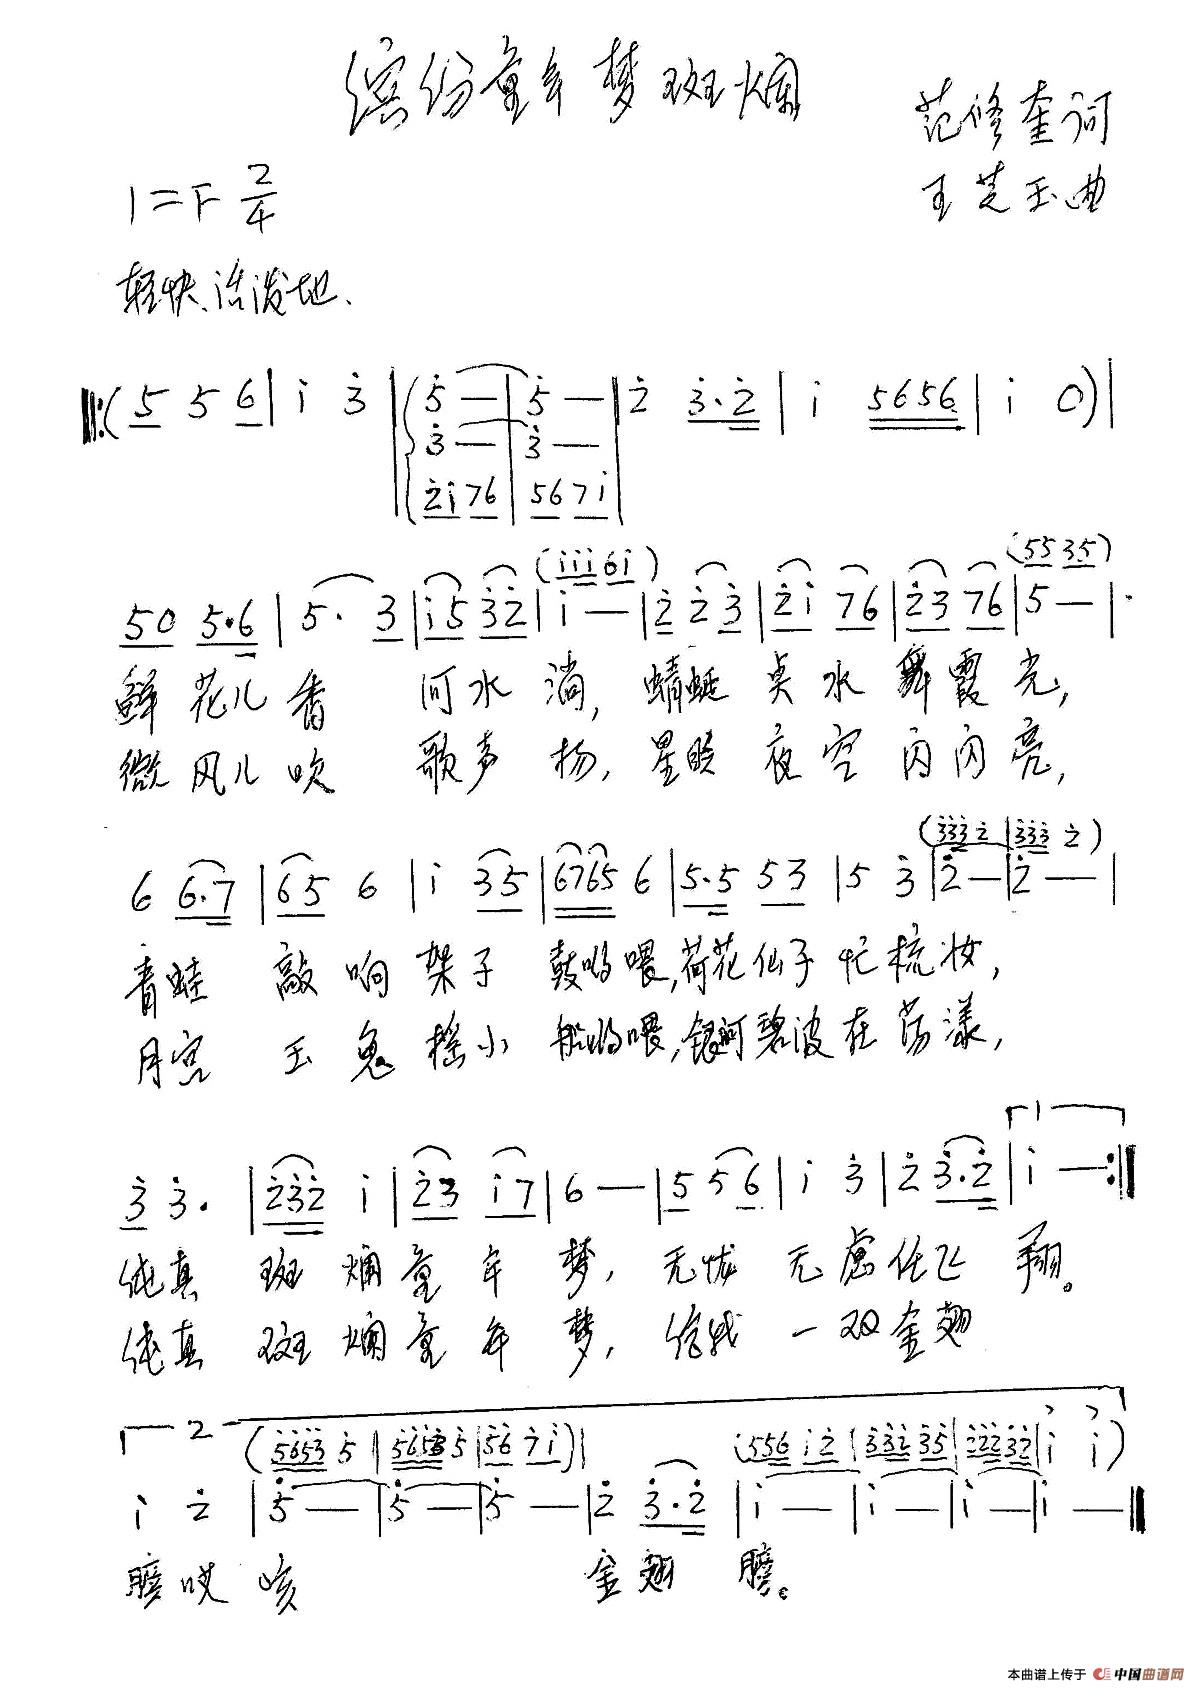 缤纷童年梦斑斓
范修奎词
王芝玉曲
1=F 2/4
轻快、活泼地.
(5 5 6 | i 3 | 5 — | 5 — | 2 3·2 | i 5656 | i 0) |
3 — | 3 —
2i76 | 567i
(iii6i) (5535)
50 5·6 | 5· 3 | i5 32 | i — | 2 2 3 | 2i 76 | 23 76 | 5 — |
鲜花儿香 河水淌,蜻蜓点水舞霞光,
微风儿吹 歌声扬,星眸夜空闪闪亮,
(333 2 | 333 2)
6 6·7 | 65 6 | i 35 | 6765 6 | 5·5 53 | 5 3 | 2 — | 2 — |
青蛙 敲响架子鼓哟喂,荷花仙子忙梳妆,
月宫 玉兔摇小船哟喂,银河碧波在荡漾,
1
3 3· | 232 i | 23 i7 | 6 — | 5 5 6 | i 3 | 2 3·2 | i — :|
纯真 斑斓童年梦,无忧无虑任飞翔。
纯真 斑斓童年梦,给我一双金翅
2
(5653 5 | 5653 5 | 56 7i) (556 i2 | 332 35 | 222 32 | i i)
i 2 | 5 — | 5 — | 5 — | 2 3·2 | i — | i — | i — | i — ‖
膀哎咳 金翅膀。
本曲谱上传于 中国曲谱网